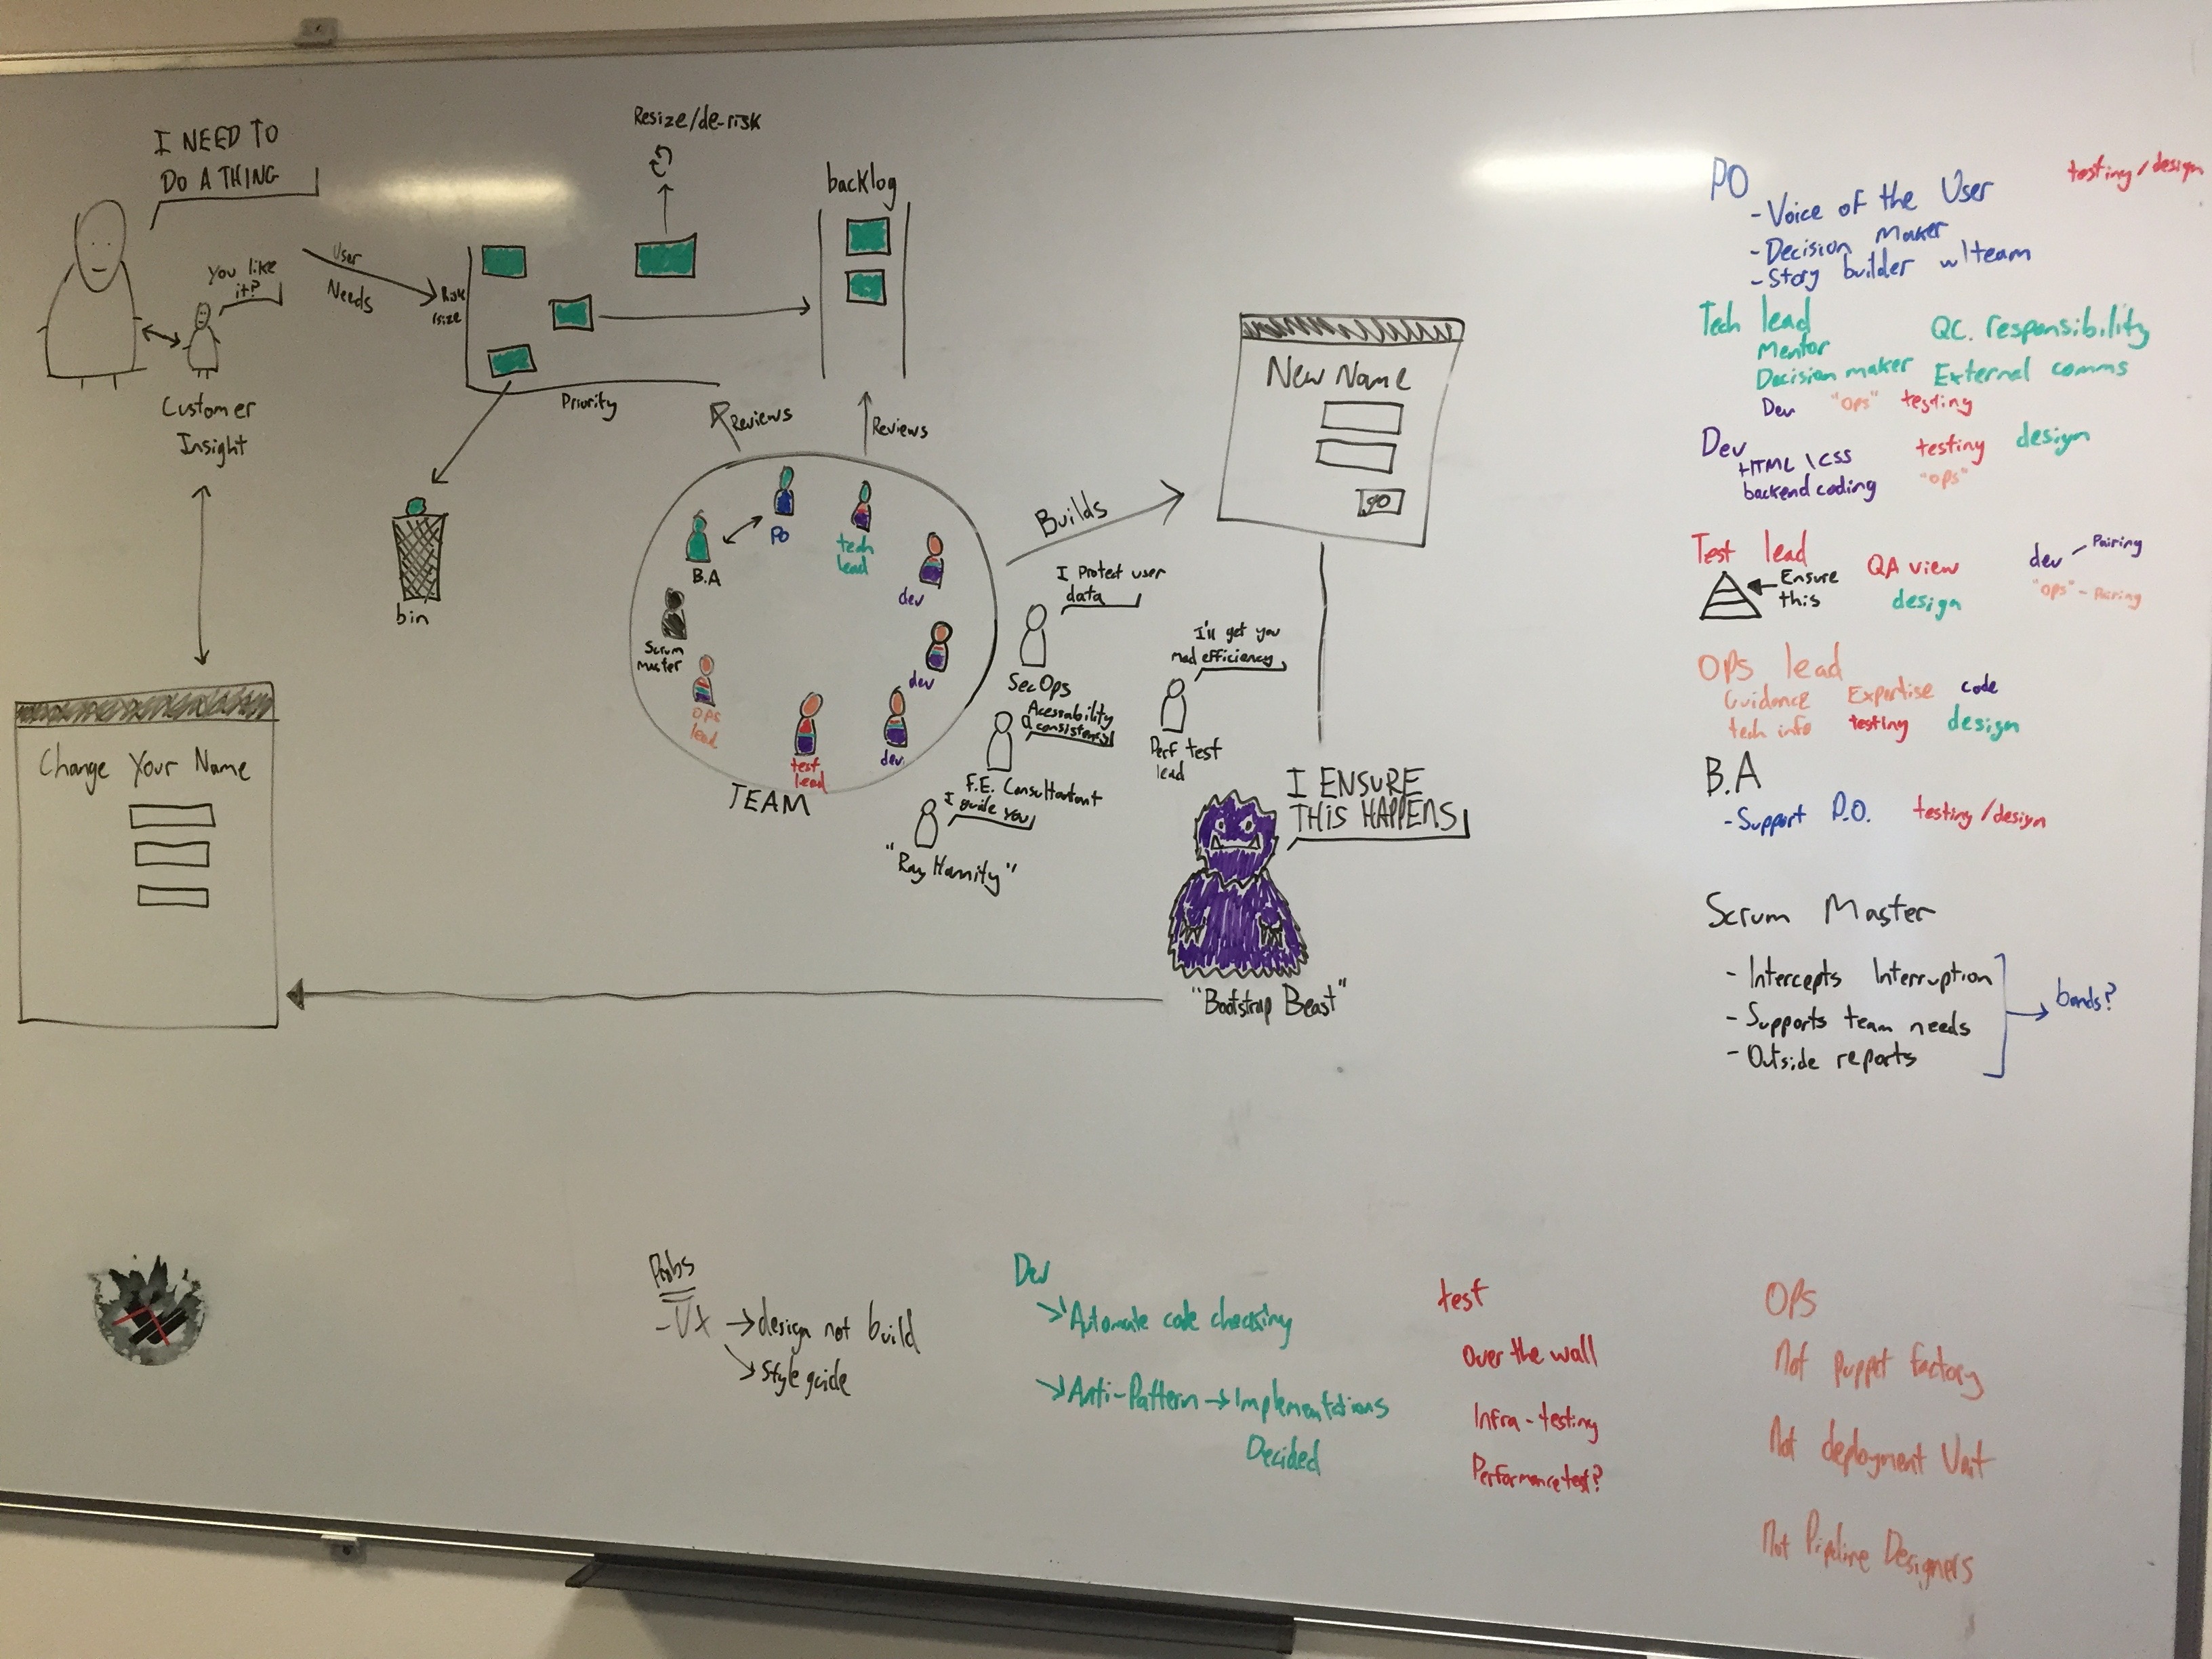 I NEED TO
DO A THING
You like
it?
Customer
Insight
User
Needs
Risk
/size
Priority
bin
Resize/de-risk
backlog
Reviews
Reviews
PO
B.A
tech
lead
dev
dev
dev
Scrum
master
OPS
lead
test
lead
TEAM
Builds
New Name
go
I Protect user
data
SecOps
I'll get you
mad efficiency
Perf test
lead
Acessability
& consistency
F.E. Consultantant
I guide you
"Ray Hamity"
I ENSURE
THIS HAPPENS
"Bootstrap Beast"
Change Your Name
PO
testing/design
- Voice of the User
- Decision maker
- Story builder w/team
Tech lead
QC. responsibility
Mentor
Decision maker External comms
Dev "Ops" testing
Dev
testing design
HTML \ CSS
"ops"
backend coding
Test lead
Ensure
this
QA view
design
dev - Pairing
"ops" - Pairing
OPS lead
Guidance Expertise code
tech info testing design
B.A
- Support P.O. testing/design
Scrum Master
- Intercepts Interruption
- Supports team needs
- Outside reports
bands?
Probs
- UX → design not build
→ Style guide
Dev
→ Automate code checking
→ Anti-Pattern → Implementations
Decided
test
Over the wall
Infra-testing
Performance test?
OPS
Not puppet factory
Not deployment Unit
Not Pipeline Designers